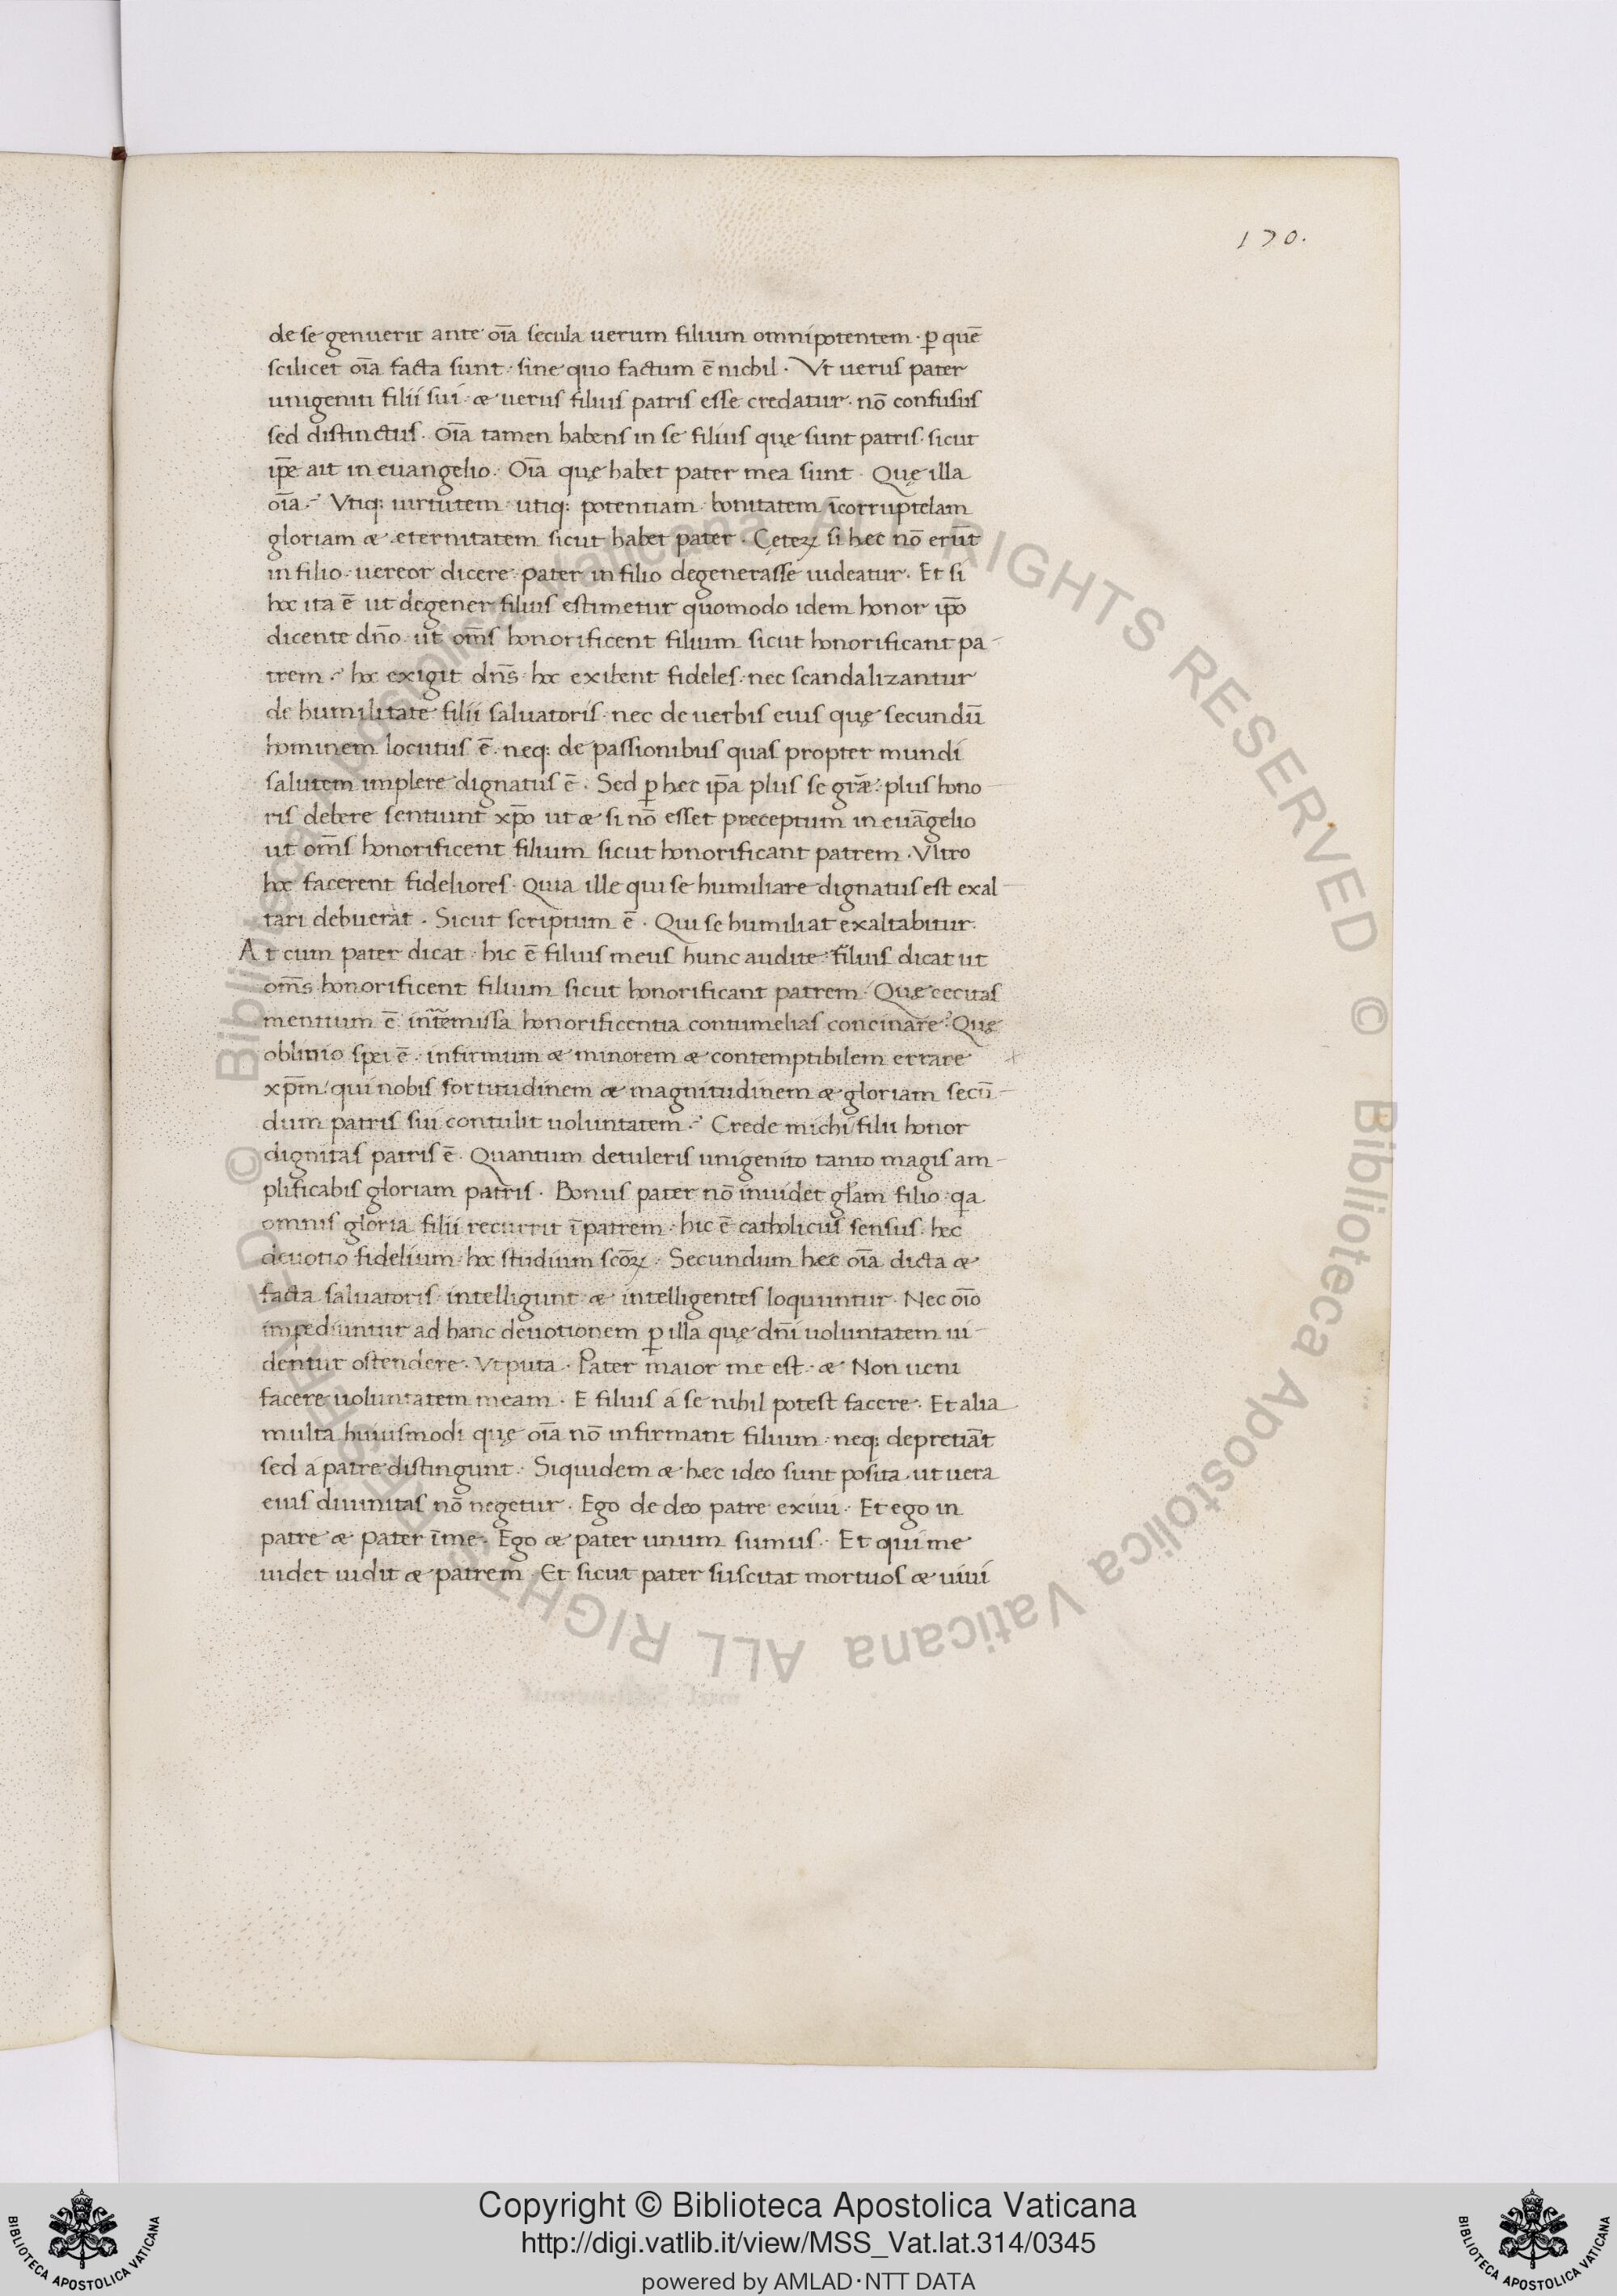 170.
de se genuerit ante oīa secula uerum filium omnipotentem · ꝑ quē
scilicet oīa facta sunt · sine quo factum ē nichil · Vt uerus pater
unigeniti filii sui · æ uerus filius patris esse credatur · nō confusus
sed distinctus · Oīa tamen habens in se filius quę sunt patris · sicut
ip̄e ait in euangelio · Oīa quę habet pater mea sunt · Quę illa
oīa ·' Vtiq; uirtutem · utiq; potentiam · bonitatem īcorruptelam
gloriam æ æternitatem sicut habet pater · Cęteꝝ si hec nō erūt
in filio · uereor dicere · pater in filio degenerasse uideatur · Et si
hoc ita ē ut degener filius estimetur quomodo idem honor ip̄o
dicente dn̄o · ut om̄s honorificent filium sicut honorificant pa-
trem ·' hoc exigit dn̄s · hoc exibent fideles · nec scandalizantur
de humilitate filii saluatoris · nec de uerbis eius quę secundū
hominem locutus ē · neq; de passionibus quas propter mundi
salutem implere dignatus ē · Sed ꝑ hec ip̄a plus se grāæ · plus hono
ris debere sentiunt xp̄o ut æ si nō esset preceptum in euāgelio
ut om̄s honorificent filium sicut honorificant patrem · Vltro
hoc facerent fideliores · Quia ille qui se humiliare dignatus est exal-
tari debuerat · Sicut scriptum ē · Qui se humiliat exaltabitur ·
At cum pater dicat · hic ē filius meus hunc audite · filius dicat ut
om̄s honorificent filium sicut honorificant patrem · Quę cecitas
mentium ē int̄emissa honorificentia contumelias concinare ·' Quę
obliuio spei ē · infirmum æ minorem æ contemptibilem errare
xp̄m / qui nobis fortitudinem æ magnitudinem æ gloriam secū-
dum patris sui contulit uoluntatem ·' Crede michi / filii honor
dignitas patris ē · Quantum detuleris unigenito tanto magis am-
plificabis gloriam patris · Bonus pater nō inuidet gl̄am filio · qa
omnis gloria filii recurrit ī patrem · hic ē catholicus sensus · hęc
deuotio fidelium · hoc studium scōꝝ · Secundum hec oīa dicta æ
facta saluatoris intelligunt · æ intelligentes loquuntur · Nec oīo
impediuntur ad hanc deuotionem ꝑ illa quę dn̄i uoluntatem ui-
dentur ostendere · Vt puta · Pater maior me est · æ Non ueni
facere uoluntatem meam · E filius á se nihil potest facere · Et alia
multa huiusmodi quę oīa nō infirmant filium · neq; depretiāt
sed á patre distingunt · Siquidem æ hec ideo sunt posita · ut uera
eius diuinitas nō negetur · Ego de deo patre exiui · Et ego in
patre æ pater ī me · Ego æ pater unum sumus · Et qui me
uidet uidit æ patrem Et sicut pater suscitat mortuos æ uiui
© Biblioteca Apostolica Vaticana ALL RIGHTS RESERVED
© Biblioteca Apostolica Vaticana ALL RIGHTS RESERVED
Copyright © Biblioteca Apostolica Vaticana
http://digi.vatlib.it/view/MSS_Vat.lat.314/0345
powered by AMLAD·NTT DATA
BIBLIOTECA APOSTOLICA VATICANA
BIBLIOTECA APOSTOLICA VATICANA